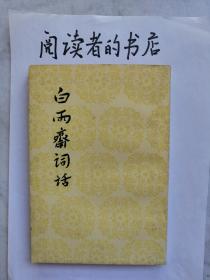 阅读者的书店
白雨斋词话